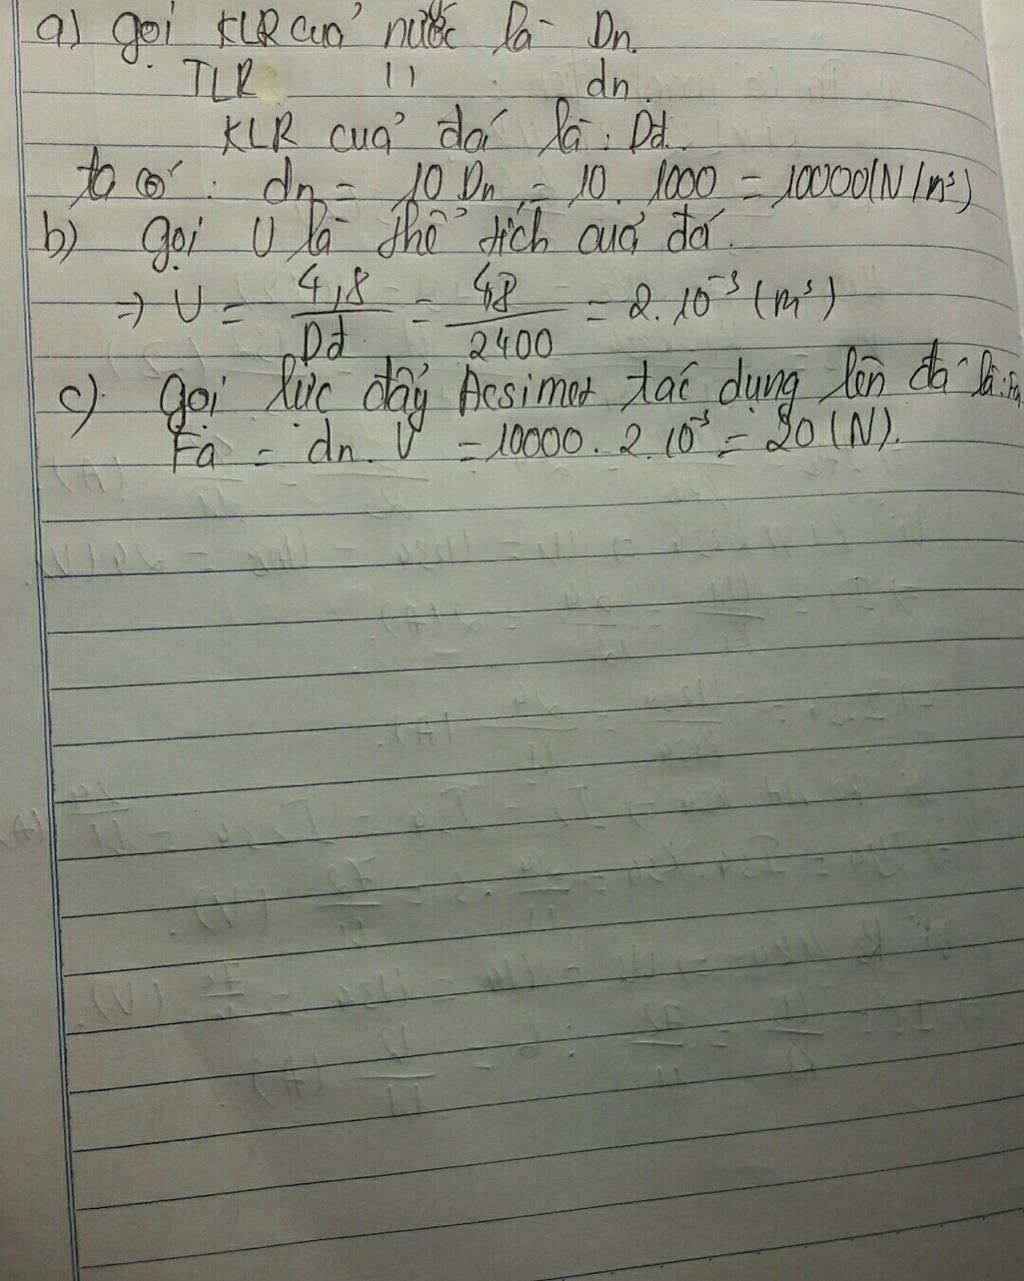 a) gọi KLR của nước là Dn.
TLR " dn.
KLR của đá là: Dd.
ta có: dn = 10 Dn = 10. 1000 = 10000 (N/m³)
b) gọi V là thể tích của đá.
=> V = 4,8/Dd = 4,8/2400 = 2.10⁻³ (m³)
c) gọi lực đẩy Acsimet tác dụng lên đá là: Fa
Fa = dn. V = 10000. 2.10⁻³ = 20 (N).